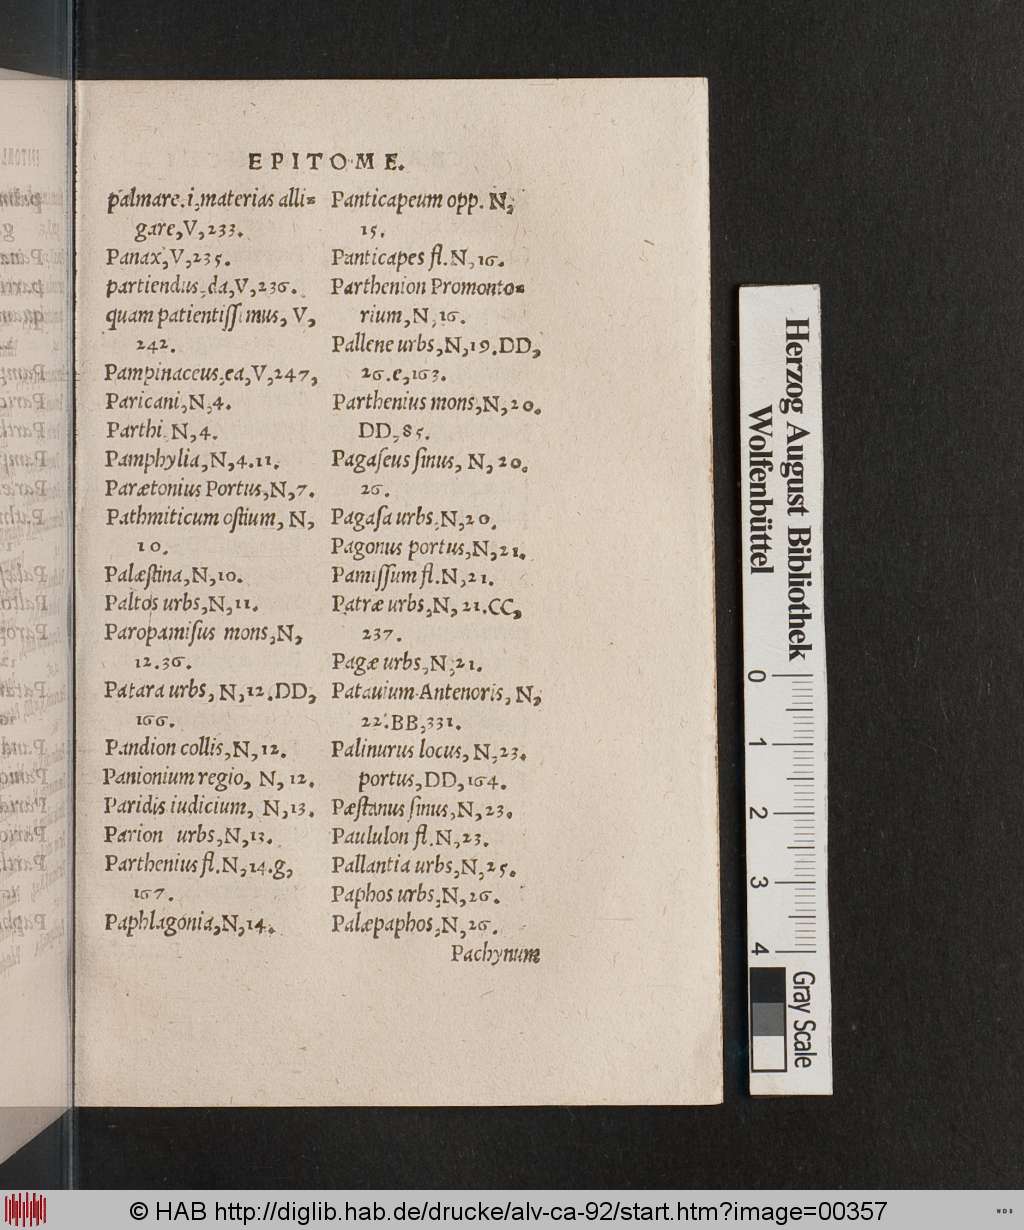 EPITOME.
palmare.i,materias alli=
gare,V,233.
Panax,V,235.
partiendus,da,V,236.
quam patientissimus, V,
242.
Pampinaceus,ea,V,247,
Paricani,N,4.
Parthi N,4.
Pamphylia,N,4.11.
Parætonius Portus,N,7.
Pathmiticum ostium, N,
10.
Palæstina,N,10.
Paltos urbs,N,11.
Paropamisus mons,N,
12.36.
Patara urbs, N,12.DD,
166.
Pandion collis,N,12.
Panionium regio, N, 12.
Paridis iudicium, N,13.
Parion urbs,N,13.
Parthenius fl.N,14.g,
167.
Paphlagonia,N,14.
Panticapeum opp. N,
15.
Panticapes fl.N,16.
Parthenion Promonto=
rium,N,16.
Pallene urbs,N,19.DD,
26.e,163.
Parthenius mons,N,20.
DD,85.
Pagaseus sinus, N,20.
26.
Pagasa urbs,N,20.
Pagonus portus,N,21.
Pamissum fl.N,21.
Patræ urbs,N,21.CC,
237.
Pagæ urbs,N,21.
Patauium Antenoris, N,
22.BB,331.
Palinurus locus, N,23.
portus,DD,164.
Pæstanus sinus,N,23.
Paululon fl.N,23.
Pallantia urbs,N,25.
Paphos urbs,N,26.
Palæpaphos,N,26.
Pachynum
Herzog August Bibliothek
Wolfenbüttel
0
1
2
3
4
Gray Scale
© HAB http://diglib.hab.de/drucke/alv-ca-92/start.htm?image=00357
WDB